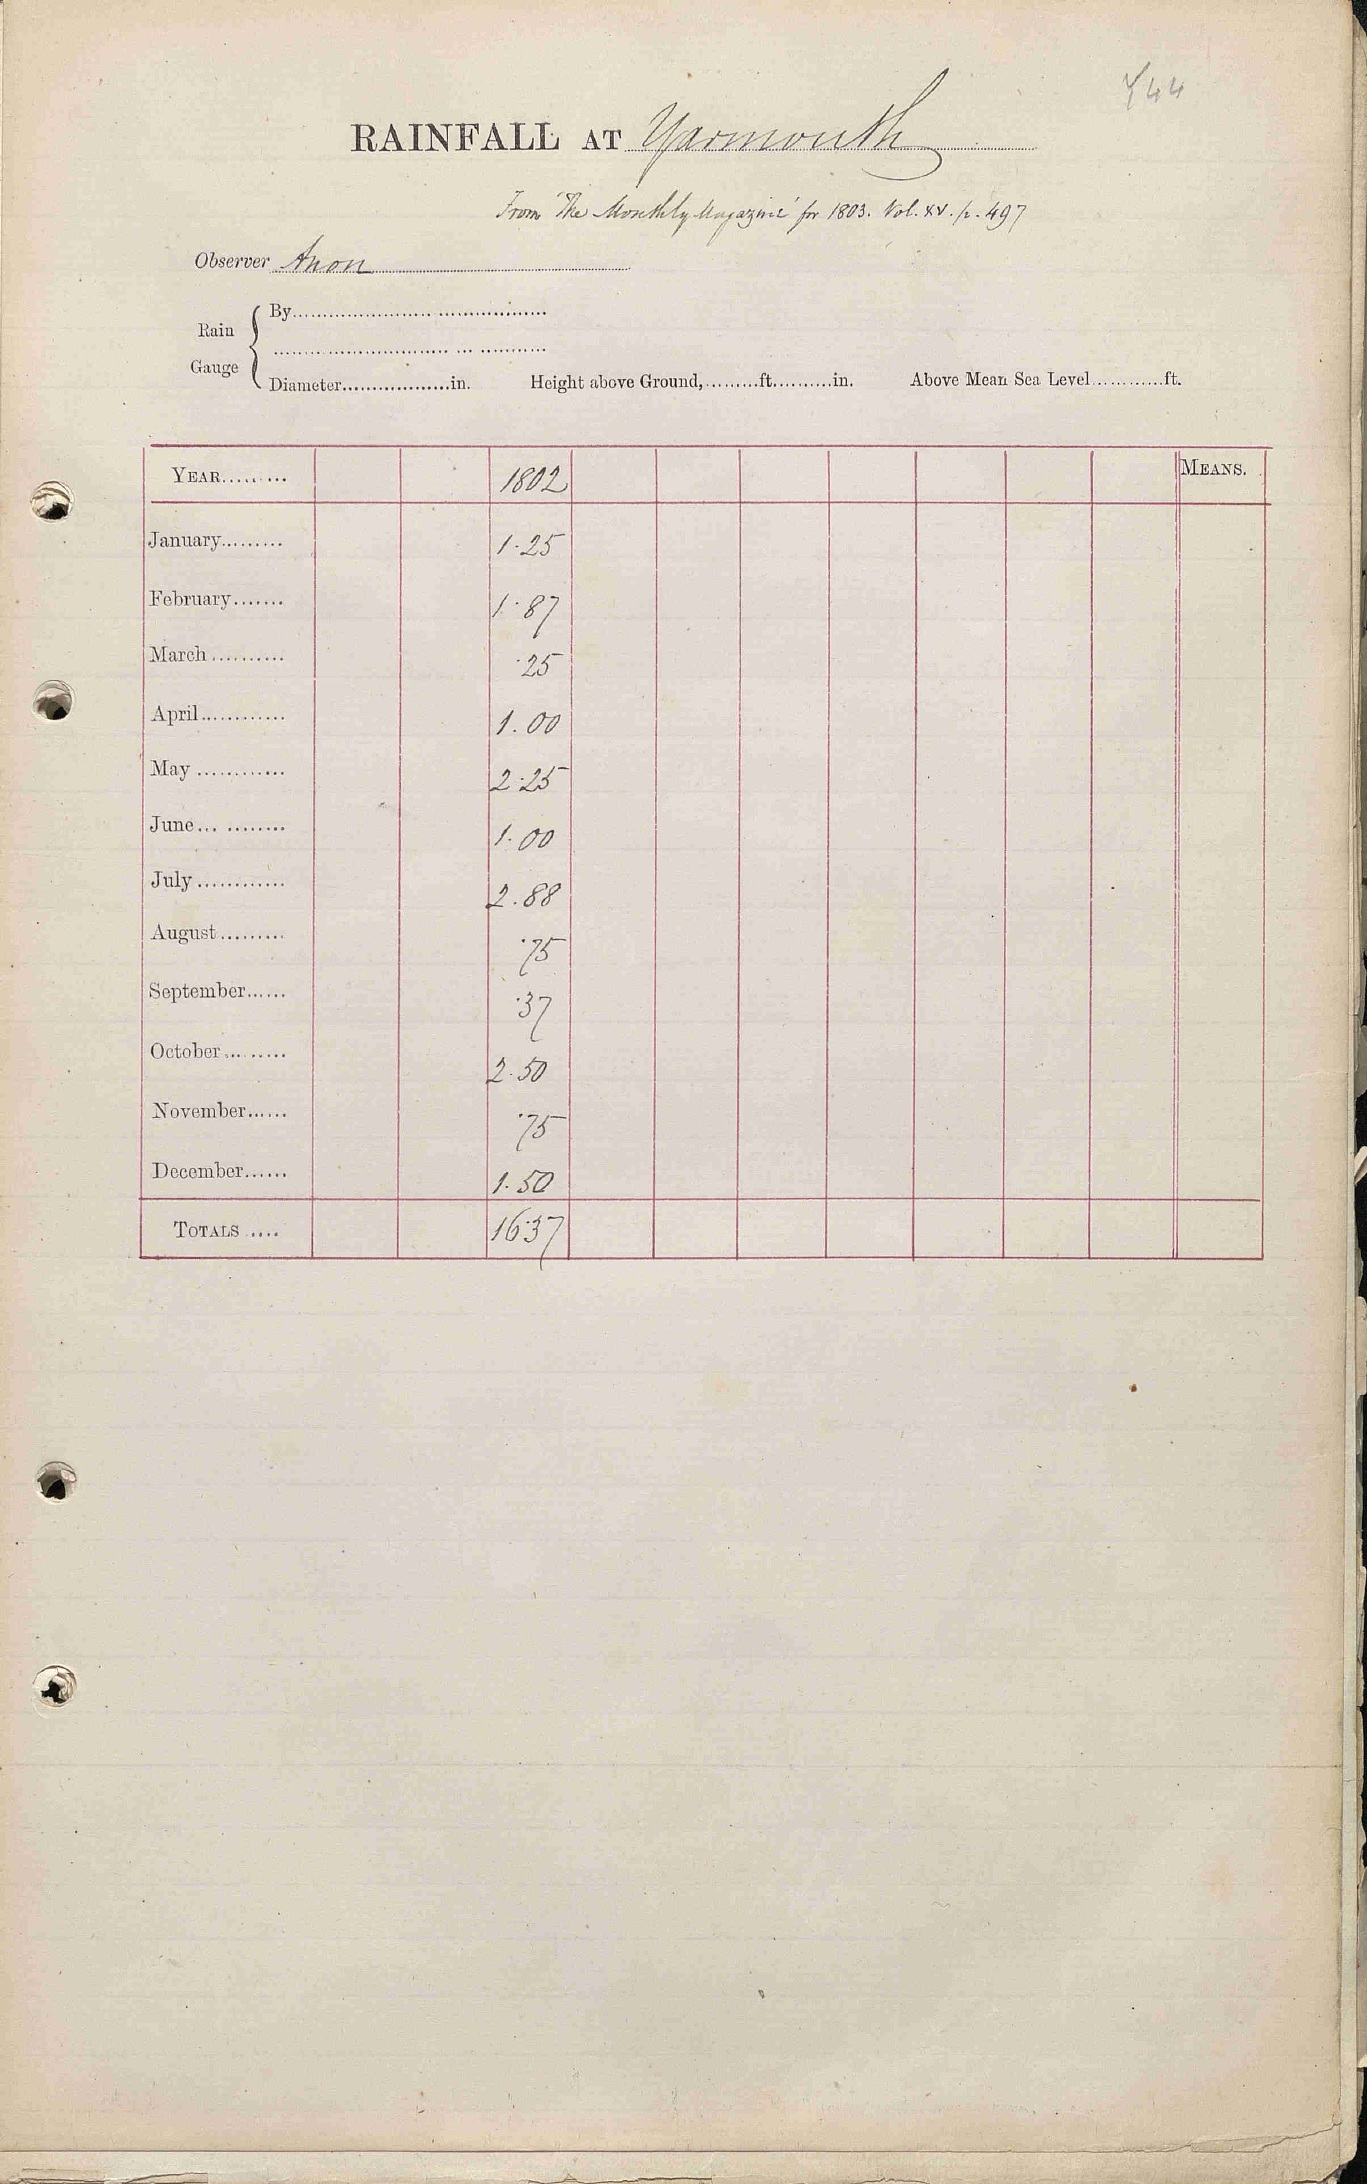 Y44
RAINFALL AT Yarmouth
From 'The Monthly Magazine' for 1803. Vol. XV. p. 497
Observer Anon
Rain Gauge { By
Diameter in. Height above Ground, ft. in. Above Mean Sea Level ft.
YEAR 1802 MEANS.
January 1.25
February 1.87
March .25
April 1.00
May 2.25
June 1.00
July 2.88
August .75
September .37
October 2.50
November .75
December 1.50
TOTALS 16.37